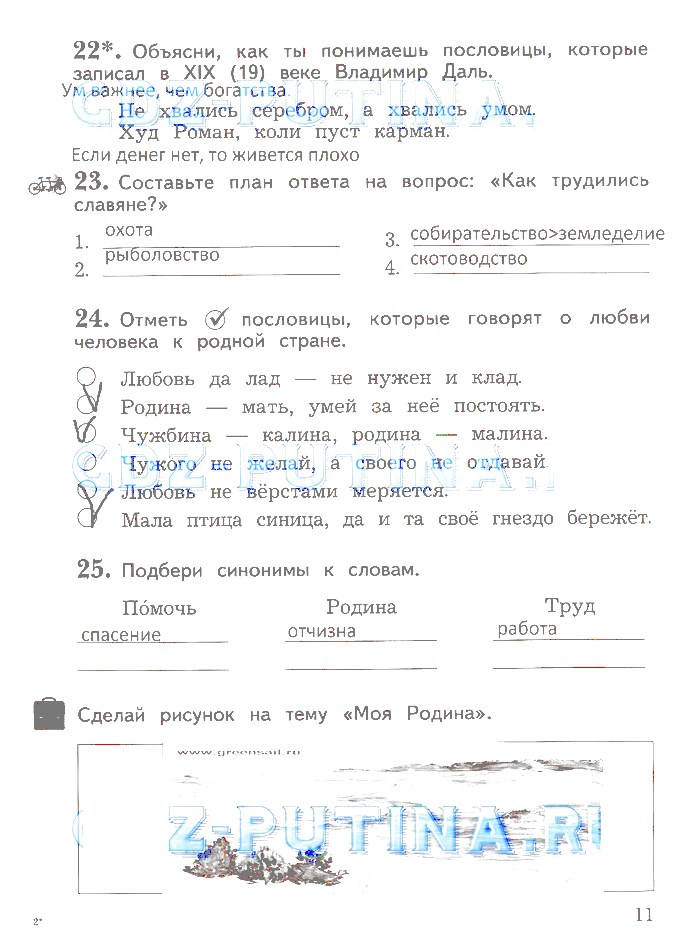 22*. Объясни, как ты понимаешь пословицы, которые
записал в XIX (19) веке Владимир Даль.
Ум важнее, чем богатства.
Не хвались серебром, а хвались умом.
Худ Роман, коли пуст карман.
Если денег нет, то живется плохо
23. Составьте план ответа на вопрос: «Как трудились
славяне?»
1. охота
3. собирательство>земледелие
2. рыболовство
4. скотоводство
24. Отметь пословицы, которые говорят о любви
человека к родной стране.
Любовь да лад — не нужен и клад.
Родина — мать, умей за неё постоять.
Чужбина — калина, родина — малина.
Чужого не желай, а своего не отдавай
Любовь не вёрстами меряется.
Мала птица синица, да и та своё гнездо бережёт.
25. Подбери синонимы к словам.
По́мочь Родина Труд
спасение отчизна работа
Сделай рисунок на тему «Моя Родина».
www.greensail.ru
Z-PUTINA.R
11
2*